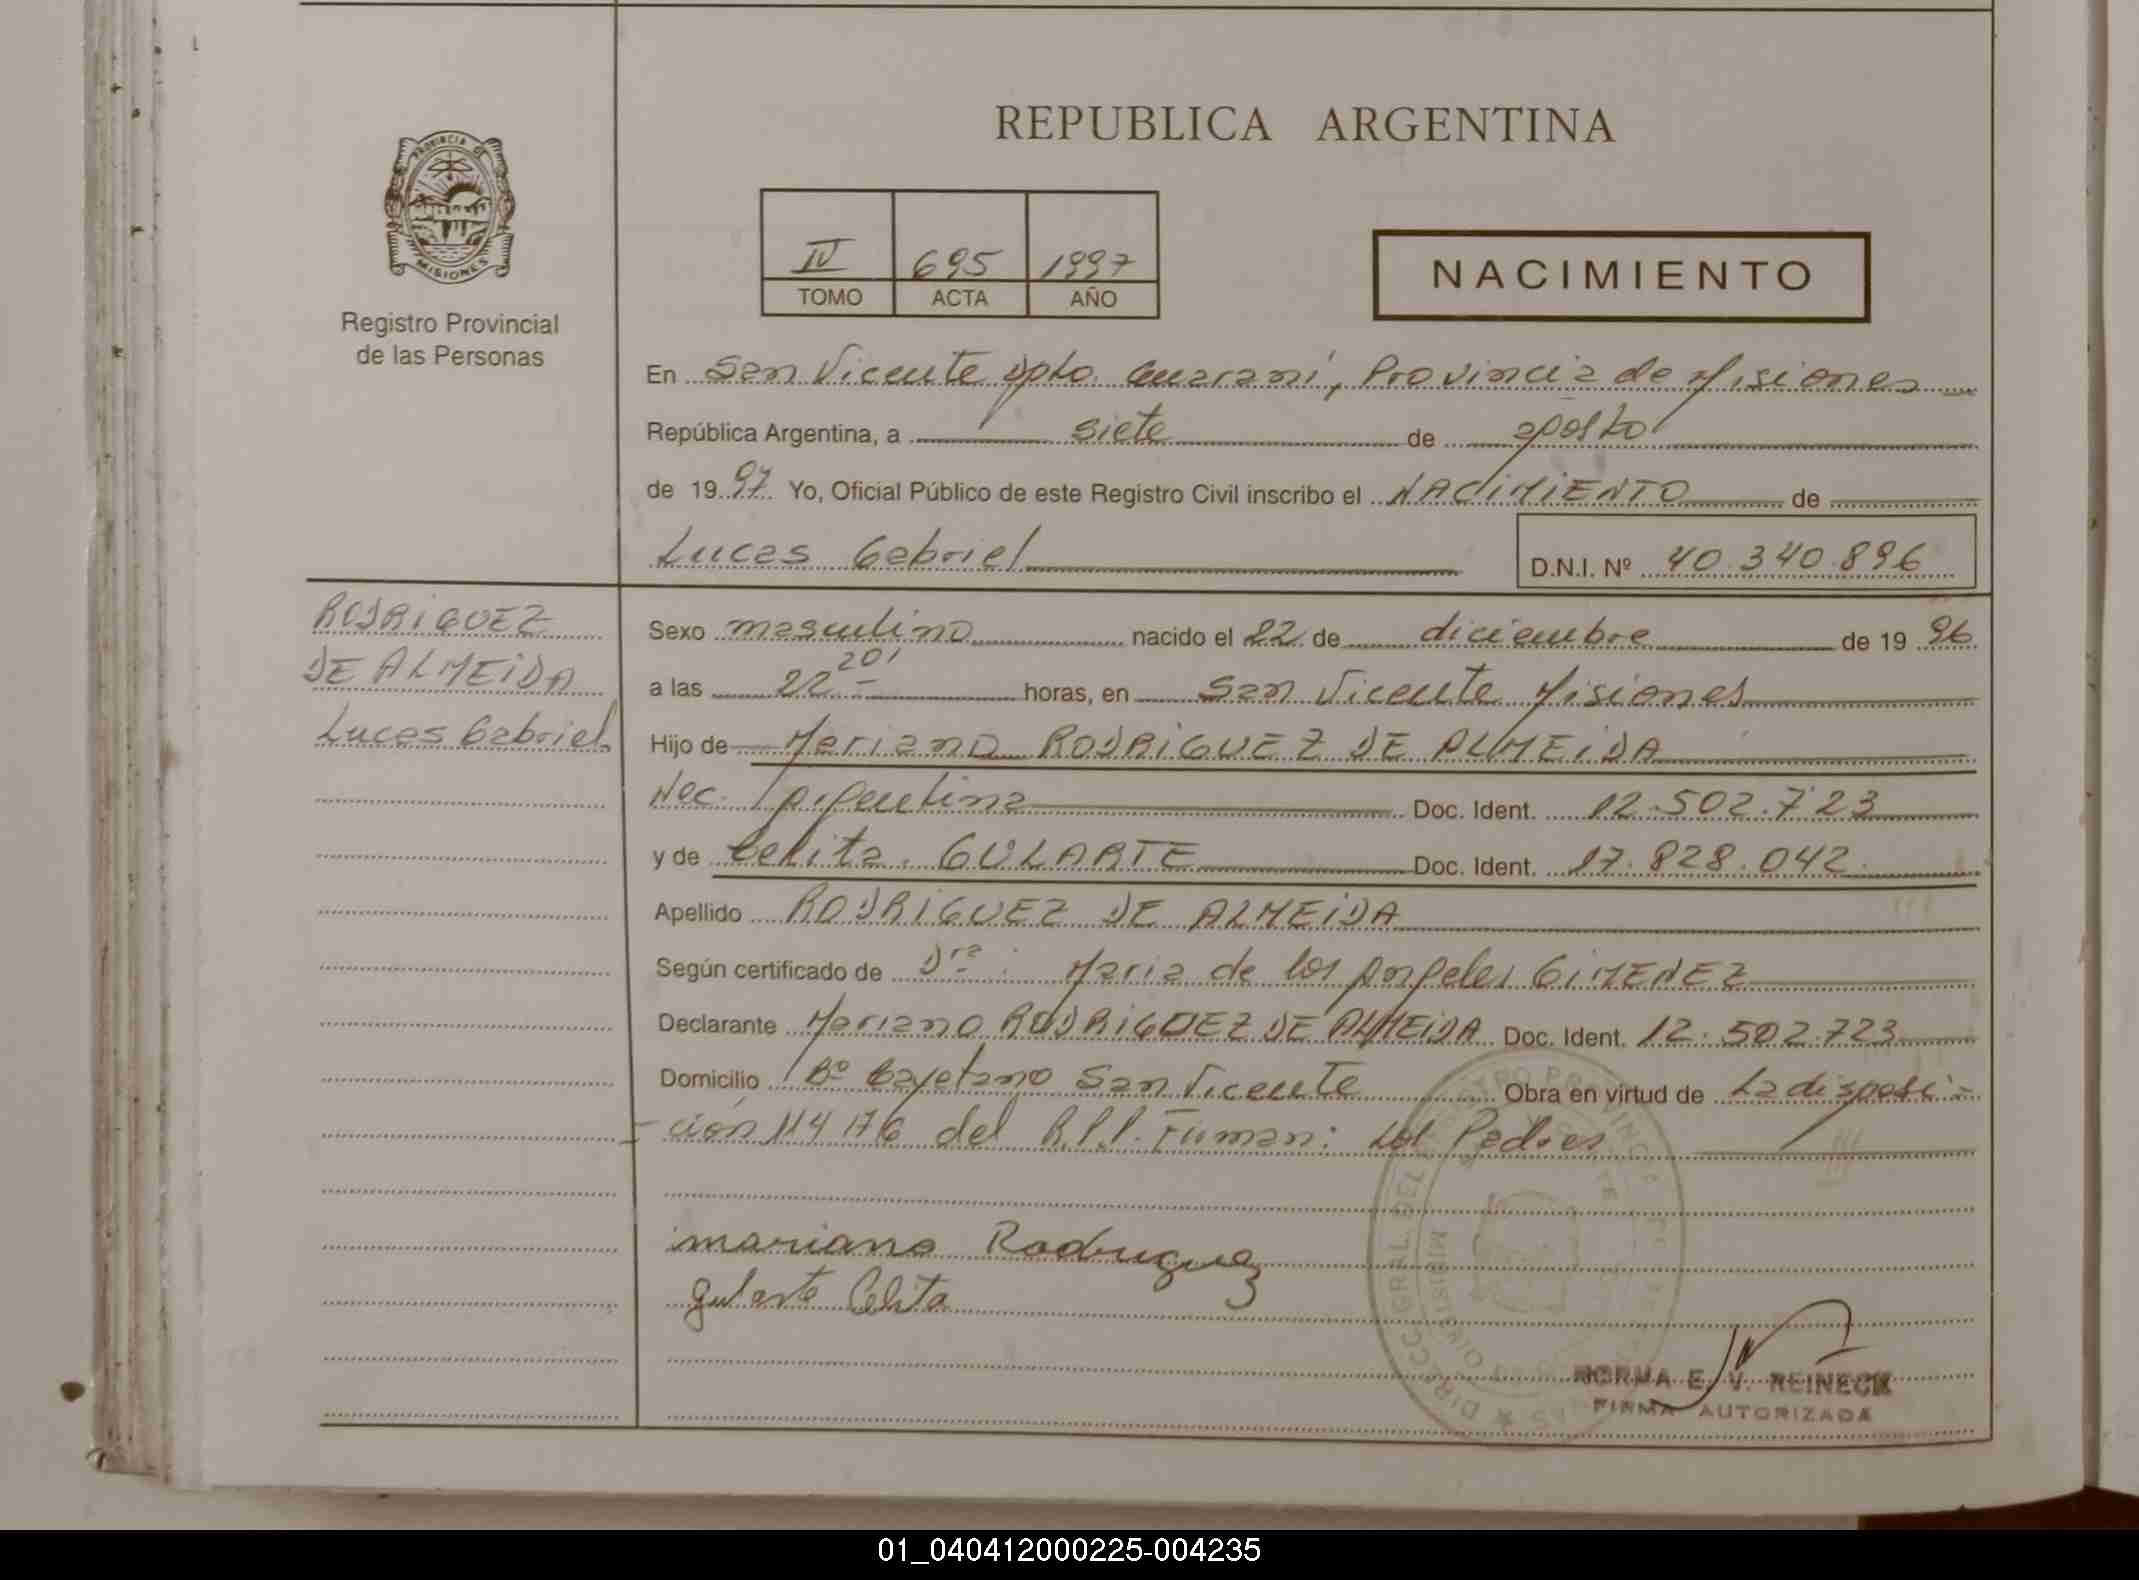 REPUBLICA ARGENTINA
PROVINCIA DE
MISIONES
Registro Provincial
de las Personas
IV 695 1997
TOMO ACTA AÑO
NACIMIENTO
En San Vicente Dpto. Guaraní, Provincia de Misiones
República Argentina, a siete de agosto
de 1997 Yo, Oficial Público de este Registro Civil inscribo el NACIMIENTO de
Lucas Gabriel D.N.I. Nº 40.340.896
RODRIGUEZ
DE ALMEIDA
Lucas Gabriel
Sexo masculino nacido el 22 de diciembre de 1996
a las 22 20' horas, en San Vicente Misiones
Hijo de Mariano RODRIGUEZ DE ALMEIDA
Nac. Argentina Doc. Ident. 12.502.723
y de Celita GULARTE Doc. Ident. 17.828.042
Apellido RODRIGUEZ DE ALMEIDA
Según certificado de Dra: Maria de los Angeles GIMENEZ
Declarante Mariano RODRIGUEZ DE ALMEIDA Doc. Ident. 12.502.723
Domicilio Bº Cayetano San Vicente Obra en virtud de La disposi-
-ción 114176 del R.P.P. Firman: Los Padres
mariano Rodriguez
gularte Celita
NORMA E. V. REINECK
FIRMA AUTORIZADA
01_040412000225-004235